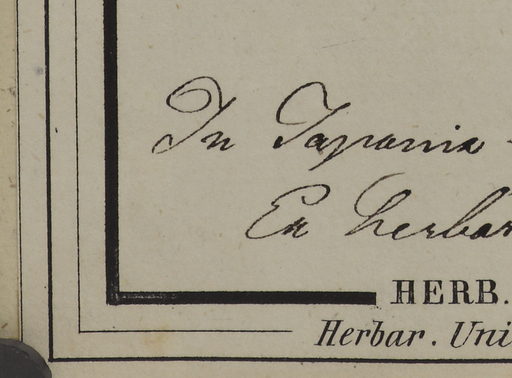 In Japonia
Ex herbar
HERB.
Herbar. Uni